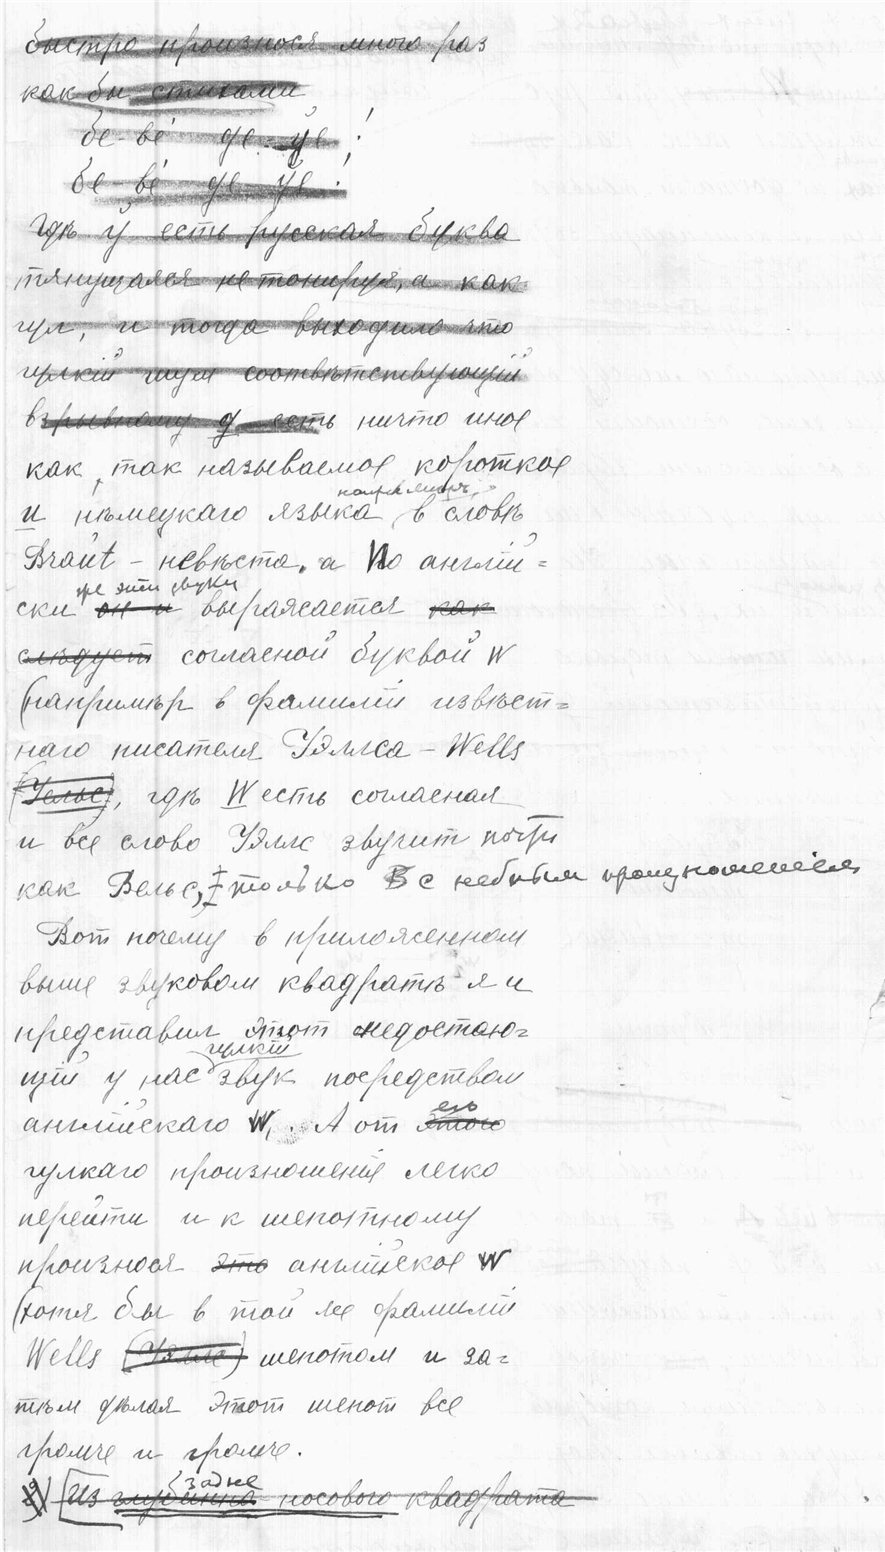 быстро произнося много раз
как бы стихами
бе-ве́ де-ўе !
бе-ве́ де-ўе !
гдѣ ў есть русская буква
тянущаяся не тонируя, а как
гул, и тогда выходило что
гулкій шум соотвѣтствующій
взрывному д есть ничто иное
как так называемое короткое
и нѣмецкаго языка (напримѣръ, в словѣ
Braut - невѣста, а по англій=
ски же эти звуки он и выражается как
слѣдует согласной буквой W
(напримѣр в фамиліи извѣст=
наго писателя Уэллса - Wells
(Уельс), гдѣ W есть согласная
и все слово Уэллс звучит почти
как Вельс, только В с небным произношеніем
Вот почему в приложенном
выше звуковом квадратѣ я и
представил этот недостаю=
щій у нас гулкій звук посредством
англійскаго W. А от его этого
гулкаго произношенія легко
перейти и к шепотному
произнося это англійское W
(хотя бы в той же фамиліи
Wells (Уэллс) шепотом и за=
тѣм дѣлая этот шепот все
громче и громче.
Из задне глубинно-носового квадрата